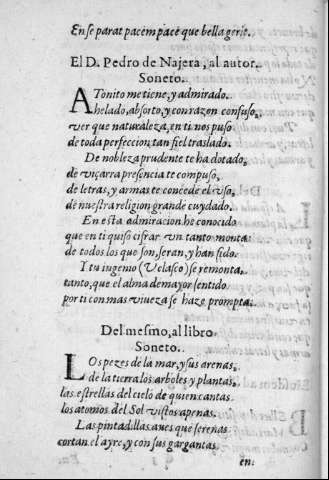 Ense parat pacem pace que bella gerit.
El D. Pedro de Najera, al autor.
Soneto.
ATonito me tiene, y admirado.
helado, absorto, y con razon confuso,
ver que naturaleza, en ti nos puso
de toda perfeccion tan fiel traslado.
De nobleza prudente te ha dotado,
de viçarra presencia te compuso,
de letras, y armas te concede el vso,
de nuestra religion grande cuydado.
En esta admiracion he conocido
que en ti quiso cifrar vn tanto monta
de todos los que son, seran, y han sido.
I tu ingenio (Velasco) se remonta
tanto, que el alma de mayor sentido
por ti con mas viueza se haze prompta.
Del mesmo, al libro
Soneto.
LOs pezes de la mar, y sus arenas,
de la tierra los arboles y plantas,
las estrellas del cielo de quien cantas
los atomos del Sol vistos apenas.
Las pintadillas aues que serenas
cortan el ayre, y con sus gargantas
en: